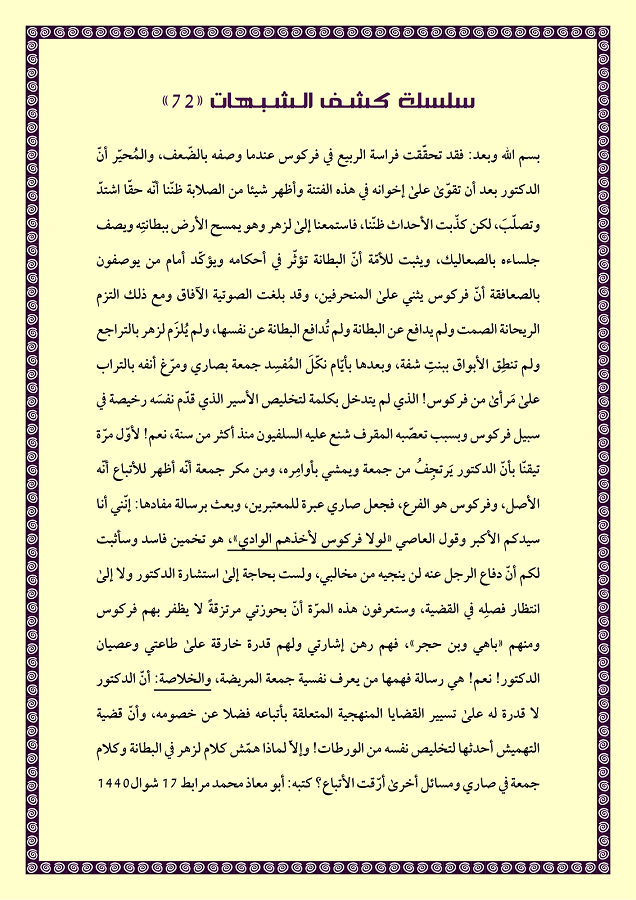 سلسلة كشف الشبهات «72»
بسم الله وبعد: فقد تحقّقت فراسة الربيع في فركوس عندما وصفه بالضّعف، والمُحيّر أنّ
الدكتور بعد أن تقوّىٰ علىٰ إخوانه في هذه الفتنة وأظهر شيئا من الصلابة ظنّنا أنّه حقّا اشتدّ
وتصلّبَ، لكن كذّبت الأحداث ظنّنا، فاستمعنا إلىٰ لزهر وهو يمسح الأرض ببطانتِه ويصف
جلساءه بالصعاليك، ويثبت للأمّة أنّ البطانة تؤثّر في أحكامه ويؤكّد أمام من يوصفون
بالصعافقة أنّ فركوس يثني علىٰ المنحرفين، وقد بلغت الصوتية الآفاق ومع ذلك التزم
الريحانة الصمت ولم يدافع عن البطانة ولم تُدافع البطانة عن نفسها، ولم يُلزَم لزهر بالتراجع
ولم تنطِق الأبواق ببنتِ شفة، وبعدها بأيّام نكّلَ المُفسِد جمعة بصاري ومرّغ أنفه بالتراب
علىٰ مَرأىٰ من فركوس! الذي لم يتدخل بكلمة لتخليص الأسير الذي قدّم نفسَه رخيصة في
سبيل فركوس وبسبب تعصّبه المقرف شنع عليه السلفيون منذ أكثر من سنة، نعم! لأوّل مرّة
تيقنّا بأنّ الدكتور يَرتجِفُ من جمعة ويمشي بأوامِره، ومن مكر جمعة أنّه أظهر للأتباع أنّه
الأصل، وفركوس هو الفرع، فجعل صاري عبرة للمعتبرين، وبعث برسالة مفادها: إنّني أنا
سيدكم الأكبر وقول العاصي «لولا فركوس لأخذهم الوادي»، هو تخمين فاسد وسأثبت
لكم أنّ دفاع الرجل عنه لن ينجيه من مخالبي، ولست بحاجة إلىٰ استشارة الدكتور ولا إلىٰ
انتظار فصلِه في القضية، وستعرفون هذه المرّة أنّ بحوزتي مرتزقةٌ لا يظفر بهم فركوس
ومنهم «باهي وبن حجر»، فهم رهن إشارتي ولهم قدرة خارقة علىٰ طاعتي وعصيان
الدكتور! نعم! هي رسالة فهمها من يعرف نفسية جمعة المريضة، والخلاصة: أنّ الدكتور
لا قدرة له علىٰ تسيير القضايا المنهجية المتعلقة بأتباعه فضلا عن خصومه، وأنّ قضية
التهميش أحدثها لتخليص نفسه من الورطات! وإلّا لماذا همّش كلام لزهر في البطانة وكلام
جمعة في صاري ومسائل أخرىٰ أرّقت الأتباع؟ كتبه: أبو معاذ محمد مرابط 17 شوال1440